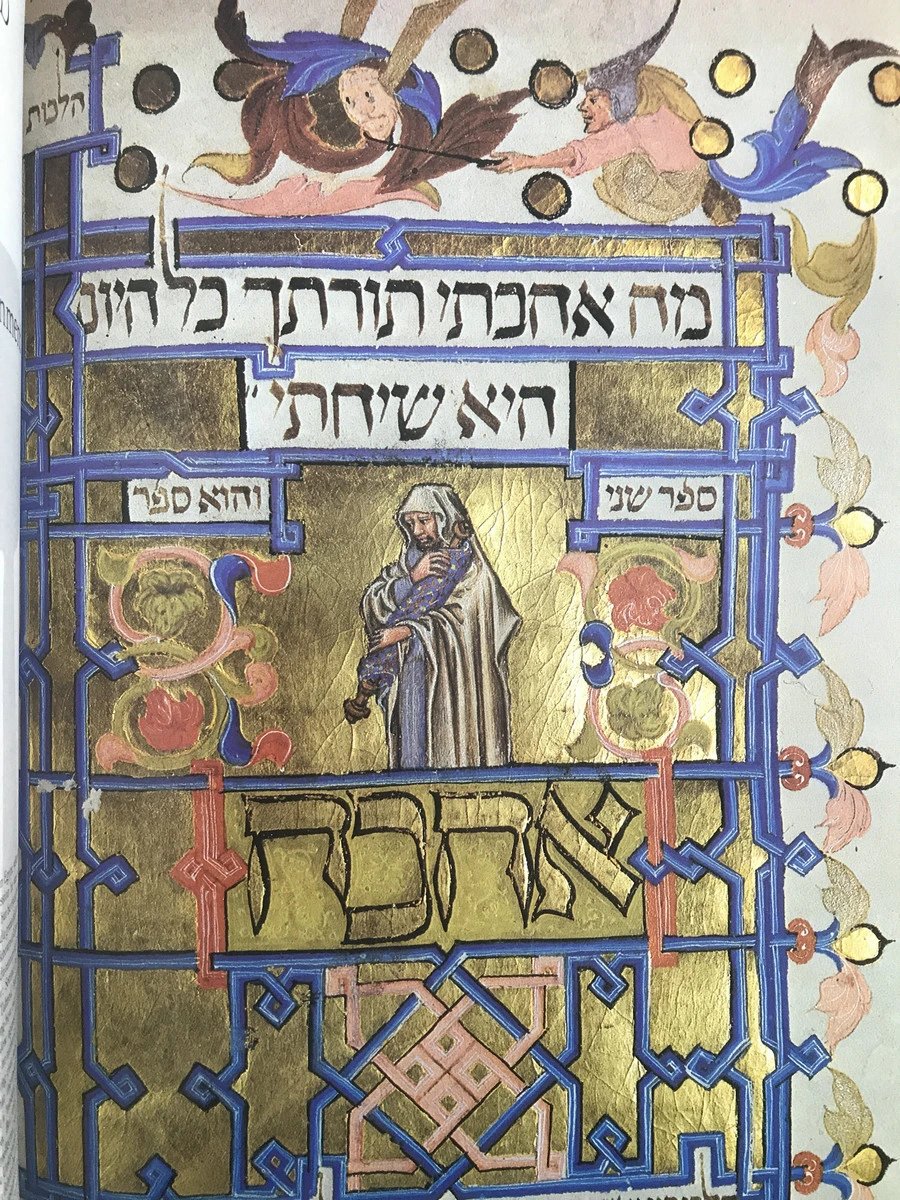 הלכות
מה אהבתי תורתך כל היום
היא שיחתי
ספר שני והוא ספר
אהבה